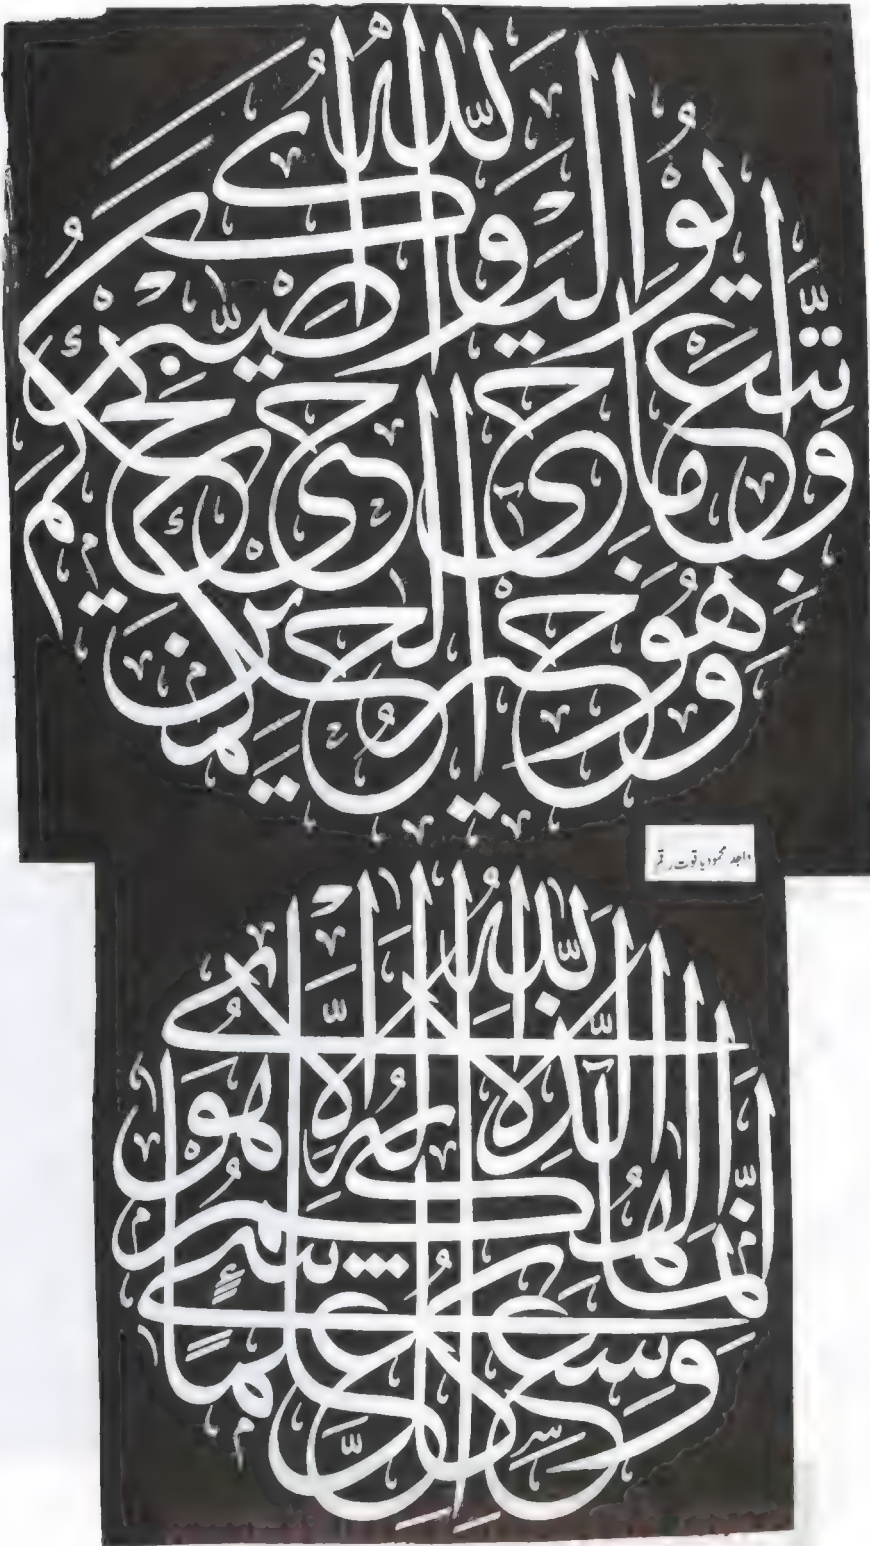 واتبع ما يوحى اليك واصبر حتى يحكم الله وهو خير الحكمين
واجد محمود یاقوت رقم
انما الهكم الله الذي لا اله الا هو وسع كل شيء علما